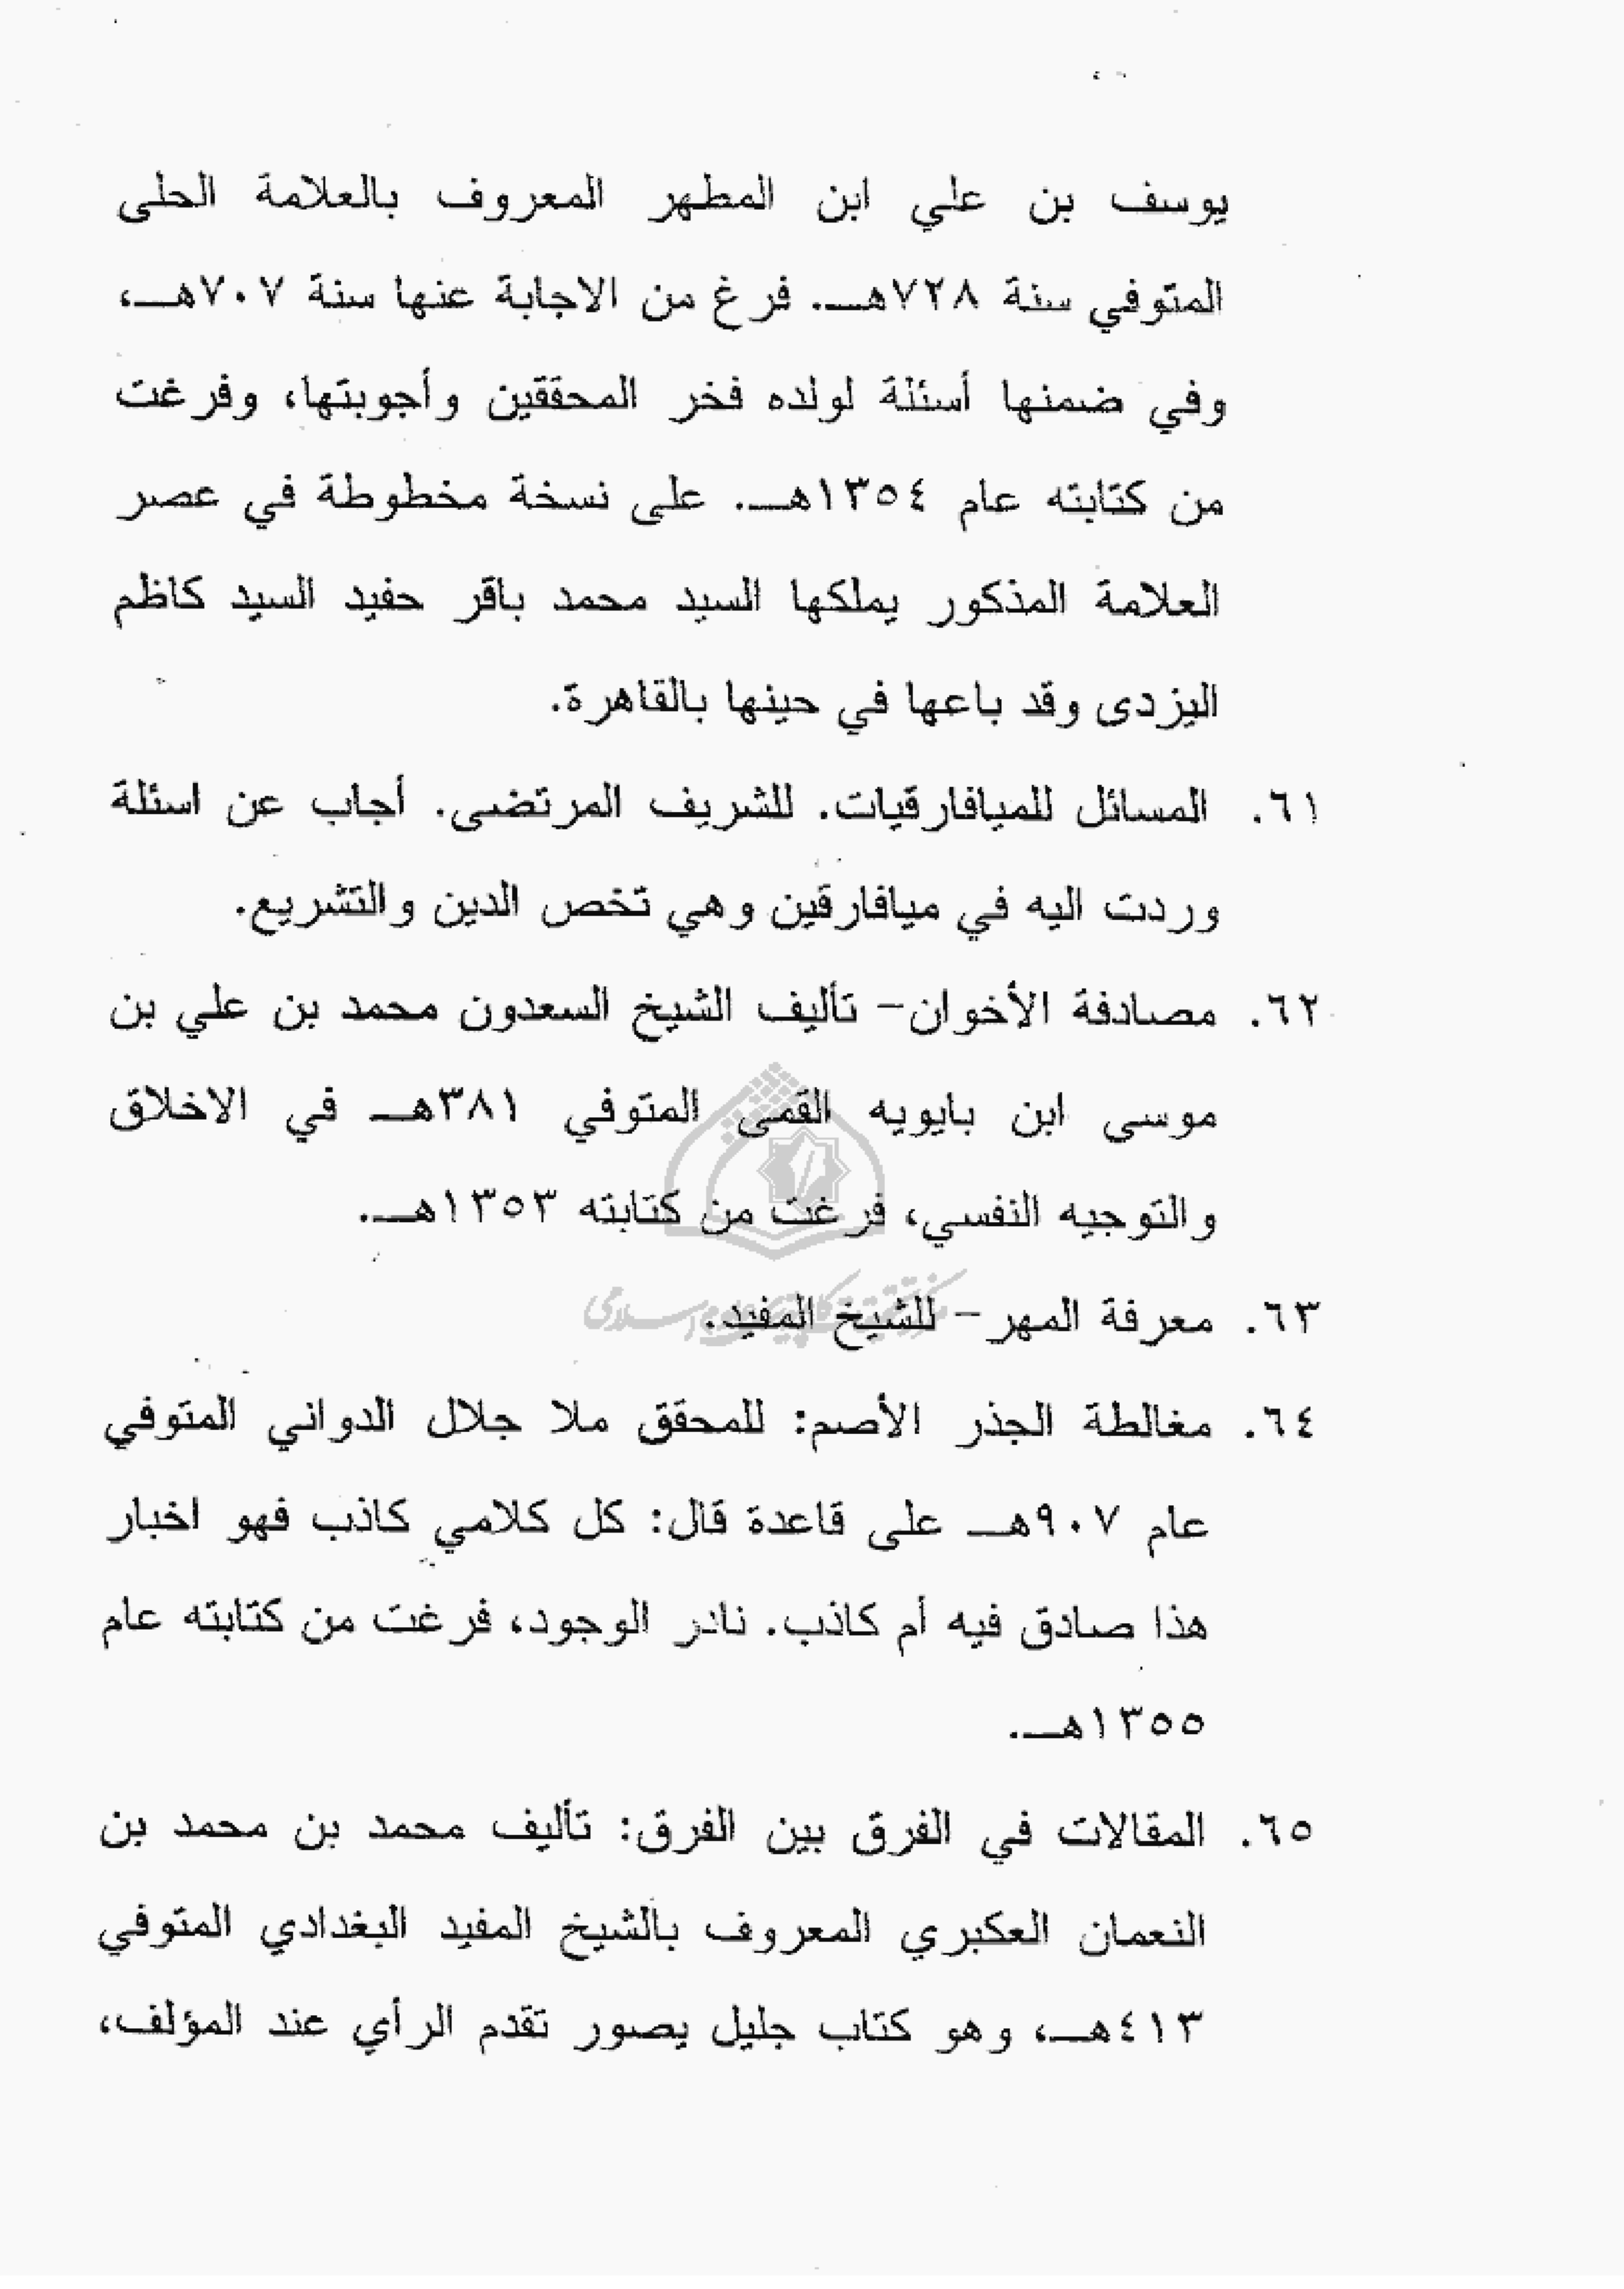 يوسف بن علي ابن المطهر المعروف بالعلامة الحلى
المتوفي سنة ٧٢٨هـ. فرغ من الاجابة عنها سنة ٧٠٧هـ،
وفي ضمنها أسئلة لولده فخر المحققين وأجوبتها، وفرغت
من كتابته عام ١٣٥٤هـ. على نسخة مخطوطة في عصر
العلامة المذكور يملكها السيد محمد باقر حفيد السيد كاظم
اليزدى وقد باعها في حينها بالقاهرة.
٦١. المسائل للميافارقيات. للشريف المرتضى. أجاب عن اسئلة
وردت اليه في ميافارقين وهي تخص الدين والتشريع.
٦٢. مصادفة الأخوان- تأليف الشيخ السعدون محمد بن علي بن
موسى ابن بابويه القمى المتوفي ٣٨١هـ في الاخلاق
والتوجيه النفسي، فرغت من كتابته ١٣٥٣هـ.
٦٣. معرفة المهر- للشيخ المفيد.
٦٤. مغالطة الجذر الأصم: للمحقق ملا جلال الدواني المتوفي
عام ٩٠٧هـ على قاعدة قال: كل كلامي كاذب فهو اخبار
هذا صادق فيه أم كاذب. نادر الوجود، فرغت من كتابته عام
١٣٥٥هـ.
٦٥. المقالات في الفرق بين الفرق: تأليف محمد بن محمد بن
النعمان العكبري المعروف بالشيخ المفيد البغدادي المتوفي
٤١٣هـ، وهو كتاب جليل يصور تقدم الرأي عند المؤلف،